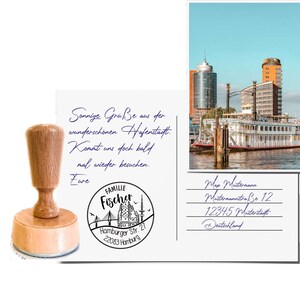 Sonnige Grüße aus der
wunderschönen Hafenstadt.
Kommt uns doch bald
mal wieder besuchen.
Eure
FAMILIE
Fischer
Hamburger Str. 21
22083 Hamburg
Max Mustermann
Mustermannstraße 12
12345 Musterstadt
Deutschland